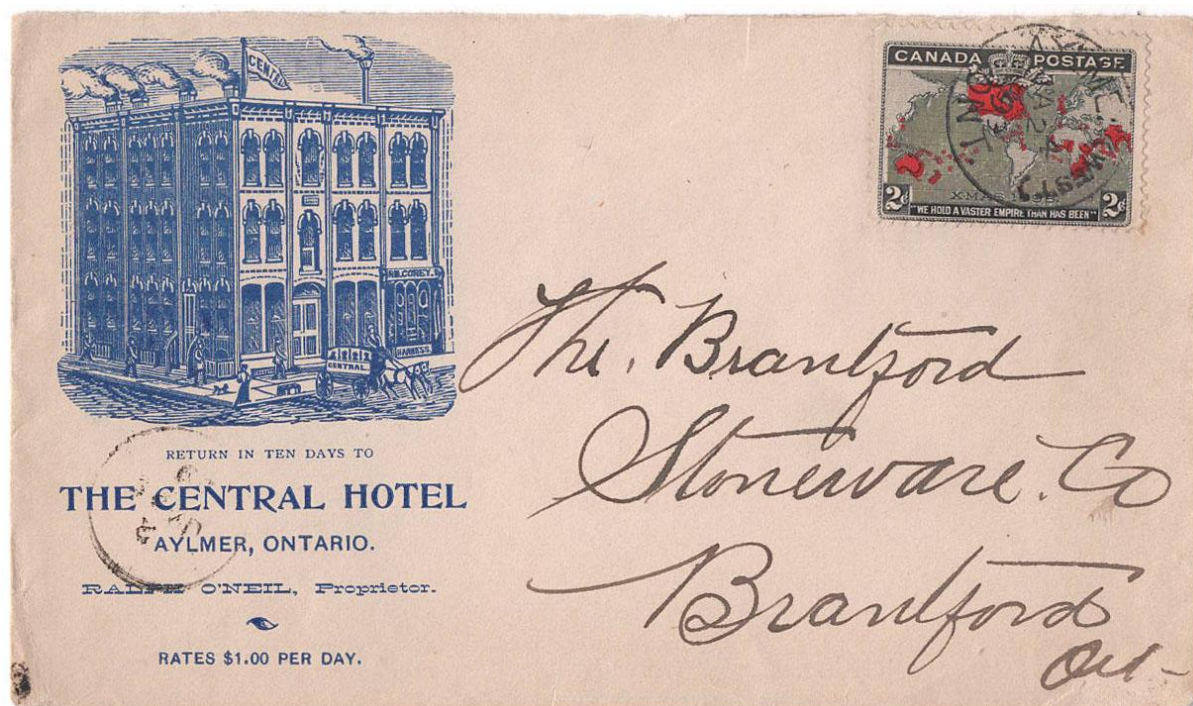 CENTRAL
N.B. COREY.
HARNESS.
CENTRAL
RETURN IN TEN DAYS TO
THE CENTRAL HOTEL
AYLMER, ONTARIO.
RALPH O'NEIL, Proprietor.
RATES $1.00 PER DAY.
CANADA POSTAGE
XMAS 1898
2c 2c
"WE HOLD A VASTER EMPIRE THAN HAS BEEN"
The. Brantford
Stoneware. Co
Brantford
Ont-